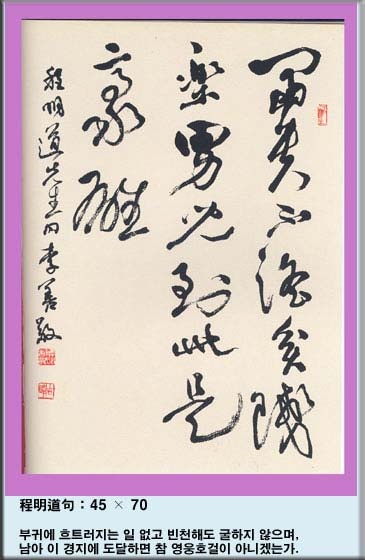 富貴不淫貧賤
樂男兒到此是
豪雄
程明道先生句 李善
程明道句 : 45 × 70
부귀에 흐트러지는 일 없고 빈천해도 굴하지 않으며,
남아 이 경지에 도달하면 참 영웅호걸이 아니겠는가.